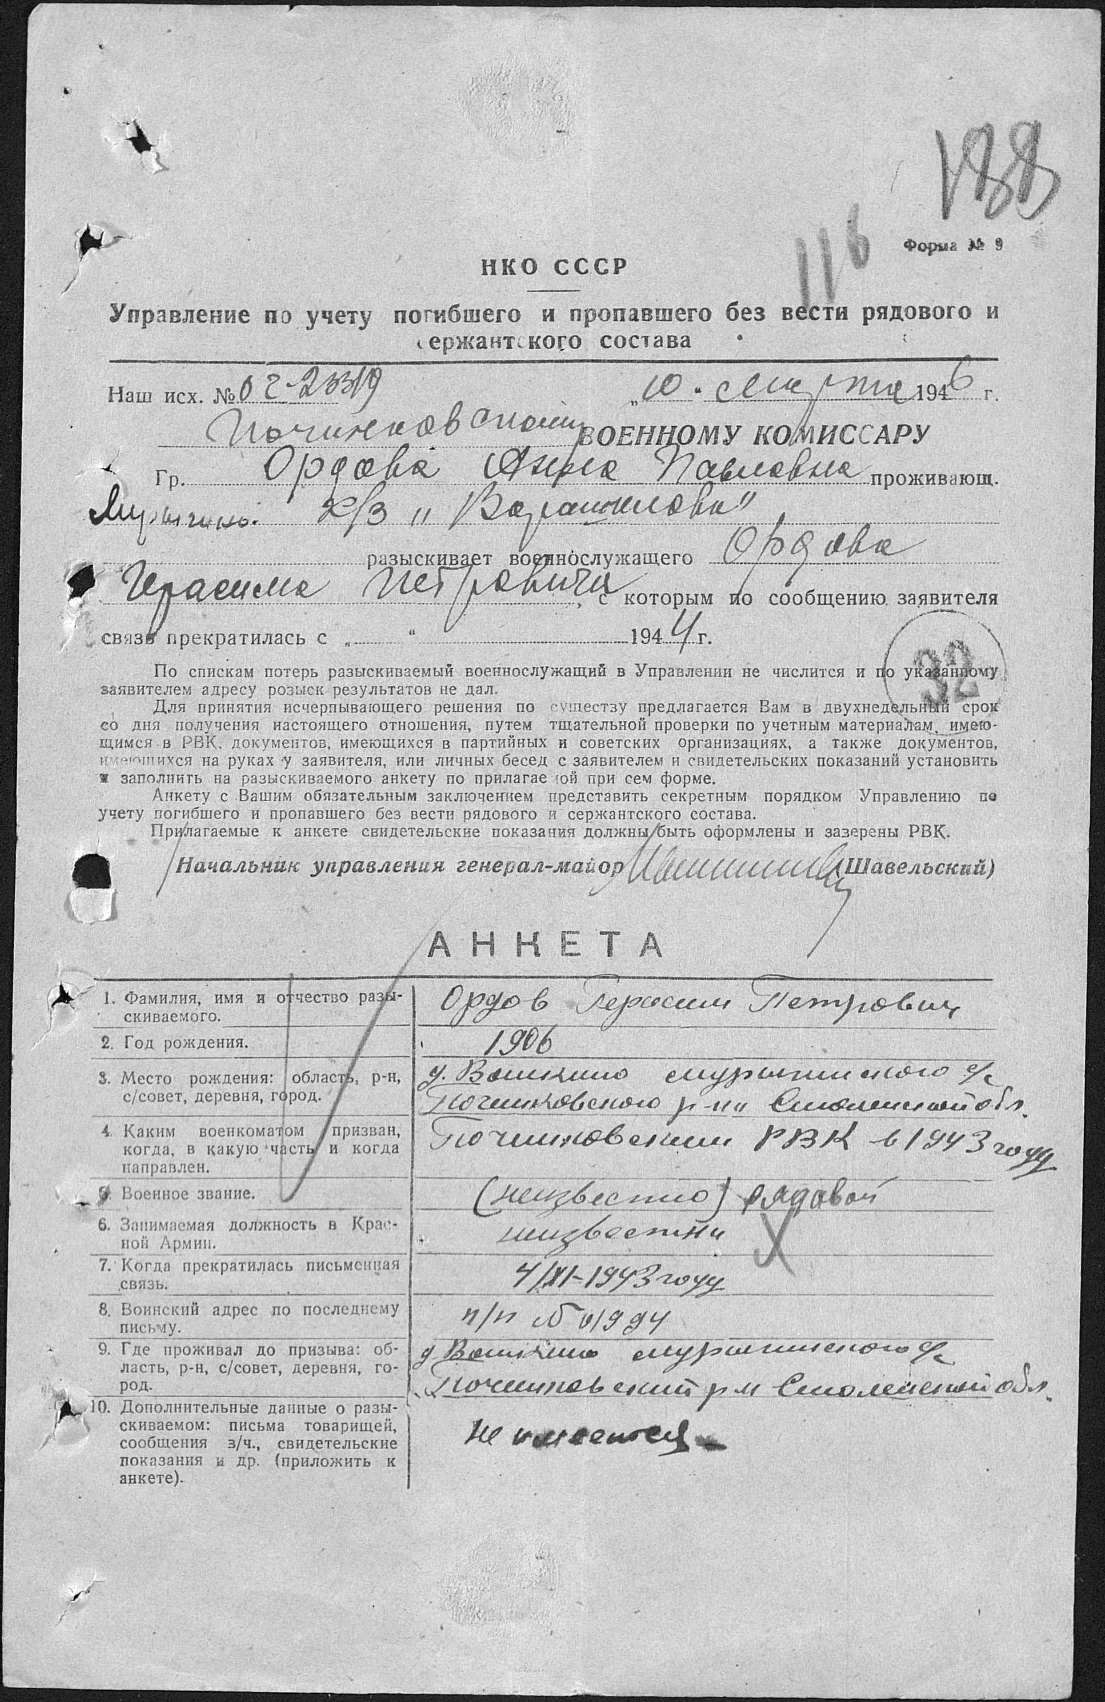 188
116
Форма № 9
НКО СССР
Управление по учету погибшего и пропавшего без вести рядового и
сержантского состава
Наш исх. № 10. марта 1946 г.
Починковскому ВОЕННОМУ КОМИССАРУ
Гр. Ордова Анна Павловна проживающ.
к/з „Ворошилова"
разыскивает военнослужащего Ордова
Герасима Петровича, с которым по сообщению заявителя
связь прекратилась с „ " 1944 г.
32
По спискам потерь разыскиваемый военнослужащий в Управлении не числится и по указанному
заявителем адресу розыск результатов не дал.
Для принятия исчерпывающего решения по существу предлагается Вам в двухнедельный срок
со дня получения настоящего отношения, путем тщательной проверки по учетным материалам, имею-
щимся в РВК, документов, имеющихся в партийных и советских организациях, а также документов,
имеющихся на руках у заявителя, или личных бесед с заявителем и свидетельских показаний установить
и заполнить на разыскиваемого анкету по прилагаемой при сем форме.
Анкету с Вашим обязательным заключением представить секретным порядком Управлению по
учету погибшего и пропавшего без вести рядового и сержантского состава.
Прилагаемые к анкете свидетельские показания должны быть оформлены и заверены РВК.
Начальник управления генерал-майор (Шавельский)
АНКЕТА
1. Фамилия, имя и отчество разы-
скиваемого.
Ордов Герасим Петрович
2. Год рождения.
1906
3. Место рождения: область, р-н,
с/совет, деревня, город.
д. Вошкино мурыгинского с/с
Починковского р-на Смоленской обл.
4. Каким военкоматом призван,
когда, в какую часть и когда
направлен.
Починковским РВК в 1943 году
5. Военное звание.
(неизвестно) рядовой
6. Занимаемая должность в Крас-
ной Армии.
неизвестна
7. Когда прекратилась письменная
связь.
4/XI-1943 году
8. Воинский адрес по последнему
письму.
п/п № 01994
9. Где проживал до призыва: об-
ласть, р-н, с/совет, деревня, го-
род.
д Вошкино мурыгинского с/с
Починковский р-н Смоленской обл.
10. Дополнительные данные о разы-
скиваемом: письма товарищей,
сообщения з/ч., свидетельские
показания и др. (приложить к
анкете).
Не имеется